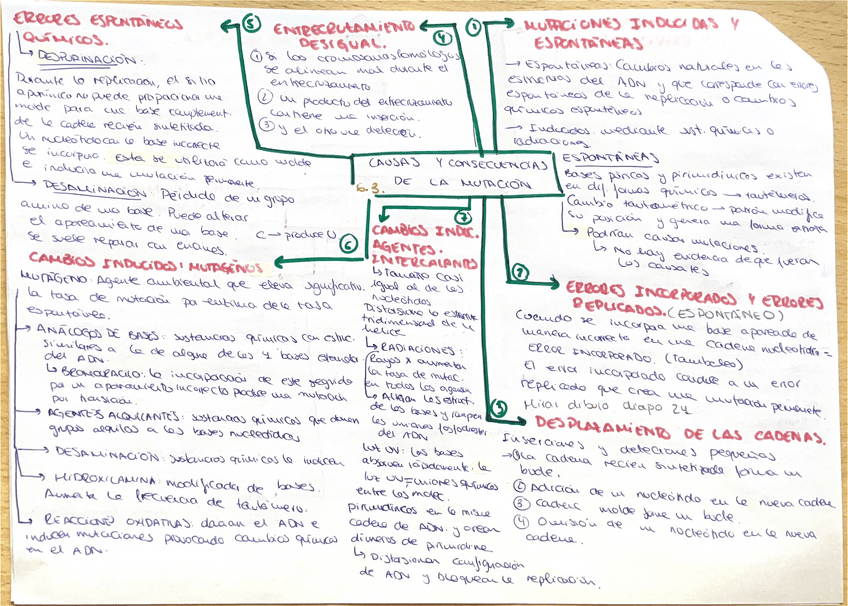 CAUSAS Y CONSECUENCIAS
DE LA MUTACIÓN
6.3.
① MUTACIONES INDUCIDAS Y
ESPONTÁNEAS
→ Espontáneas: Cambios naturales en las
estructuras del ADN y que corresponde con errores
espontáneos de la replicación o cambios
químicos espontáneos
→ Inducidas mediante sust. químicas o
radiaciones.
ESPONTÁNEAS
Bases púricas y pirimidínicas existen
en dif. formas químicas → tautómeros.
Cambio tautomérico → protón modifica
su posición y genera una forma
↳ Podrían causar mutaciones.
↳ No hay evidencia de que fueran
las causales
② ERRORES INCORPORADOS Y ERRORES
REPLICADOS. (ESPONTÁNEO)
Cuando se incorpora una base apareada de
manera incorrecta en una cadena nucleotídica =
ERROR INCORPORADO. (Tambaleo)
El error incorporado conduce a un error
replicado que crea una mutación permanente.
Mirar dibujo diapo 24
③ DESPLAZAMIENTO DE LAS CADENAS.
Inserciones y deleciones pequeñas
→ ① La cadena recién sintetizada forma un
bucle.
② Adición de un nucleótido en la nueva cadena
③ Cadena molde forma un bucle.
④ Omisión de un nucleótido en la nueva
cadena.
④ ENTRECRUZAMIENTO
DESIGUAL.
① Si los cromosomas homólogos
se alinean mal durante el
entrecruzamiento
② Un producto del entrecruzamiento
contiene una inserción.
③ y el otro una deleción.
⑤ ERRORES ESPONTÁNEOS
QUÍMICOS.
↳ DESPURINACIÓN:
Durante la replicación, el sitio
apurínico no puede proporcionar un
molde para una base complement.
de la cadena recién sintetizada.
Un nucleótido con la base incorrecta
se incorpora. Esta se utilizará como molde
e inducirá una mutación permanente.
→ DESAMINACIÓN: Pérdida de un grupo
amino de una base. Puede alterar
el apareamiento de una base.
Se suele reparar con enzimas.
C → produce U
⑥ CAMBIOS INDUCIDOS: MUTÁGENOS
MUTÁGENO: Agente ambiental que eleva significativ.
la tasa de mutación por encima de la tasa
espontánea.
→ ANÁLOGOS DE BASES: sustancias químicas con estruc.
similares a la de alguna de las 4 bases estándar
del ADN.
↳ BROMOURACILO: la incorporación de este seguido
por un apareamiento incorrecto produce una mutación
por transición.
→ AGENTES ALQUILANTES: sustancias químicas que donan
grupos alquilos a las bases nucleotídicas
→ DESAMINACIÓN: sustancias químicas la inducen
→ HIDROXILAMINA: modificada de bases.
Aumenta la frecuencia de tautómero.
↳ REACCIONES OXIDATIVAS: dañan el ADN e
inducen mutaciones provocando cambios químicos
en el ADN.
⑦ CAMBIOS INDUC.
AGENTES.
INTERCALANTES
↳ Tamaño casi
igual al de los
nucleótidos
Distorsiona la estructura
tridimensional de la
hélice
↳ RADIACIONES:
Rayos X aumentan
la tasa de mutac.
en todos los
↳ Alteran la estruct.
de las bases y rompen
las uniones fosfodiester
del ADN
Luz UV: las bases
absorben rápidamente la
luz UV = uniones químicas
entre las moléc.
pirimidínicas en la misma
cadena de ADN y crean
dímeros de pirimidina
↳ Distorsionan configuración
de ADN y bloquean la replicación.